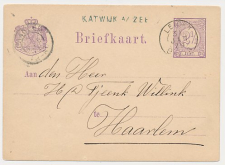 KATWIJK a/ ZEE
Briefkaart.
Aan den Heer
H. Tjeenk Willink
te
Haarlem